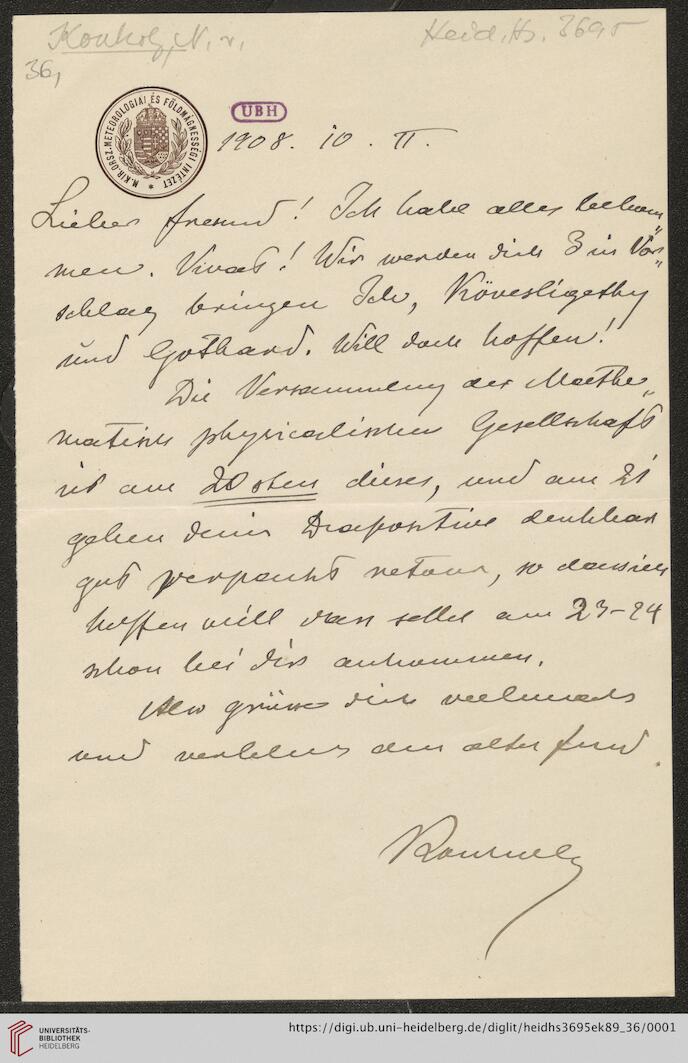 Konkoly, N. v.
Heid. Hs. 3695
36,
M. KIR. ORSZ. METEOROLOGIAI ÉS FÖLDMÁGNESSÉGI INTÉZET
UBH
1908. 10. II.
Lieber Freund! Ich habe alles bekom„
men. Vivat! Wir werden dich 3 in Vor„
schlag bringen Ich, Kövesligethy
und Gothard. Will doch hoffen!
Die Versammlung der Mathe„
matisch physicalischen Gesellschaft
ist am 20sten dieses, und am 21
gehen deine Diapositive denkbar
gut verpackt retour, so dass ich
hoffen will dass selbe am 23-24
schon bei dir ankommen.
Also grüsse dich vielmals
und verbleibe dein alter
Konkoly
UNIVERSITÄTS-
BIBLIOTHEK
HEIDELBERG
https://digi.ub.uni-heidelberg.de/diglit/heidhs3695ek89_36/0001